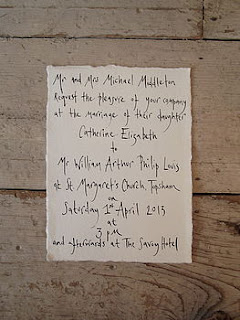 Mr and Mrs Michael Middleton
Request the pleasure of your company
at the marriage of their daughter
Catherine Elizabeth
to
Mr William Arthur Philip Louis
at St Margaret's Church, Topsham
on
Saturday 1st April 2013
at
3 pm
and afterwards at The Savoy Hotel